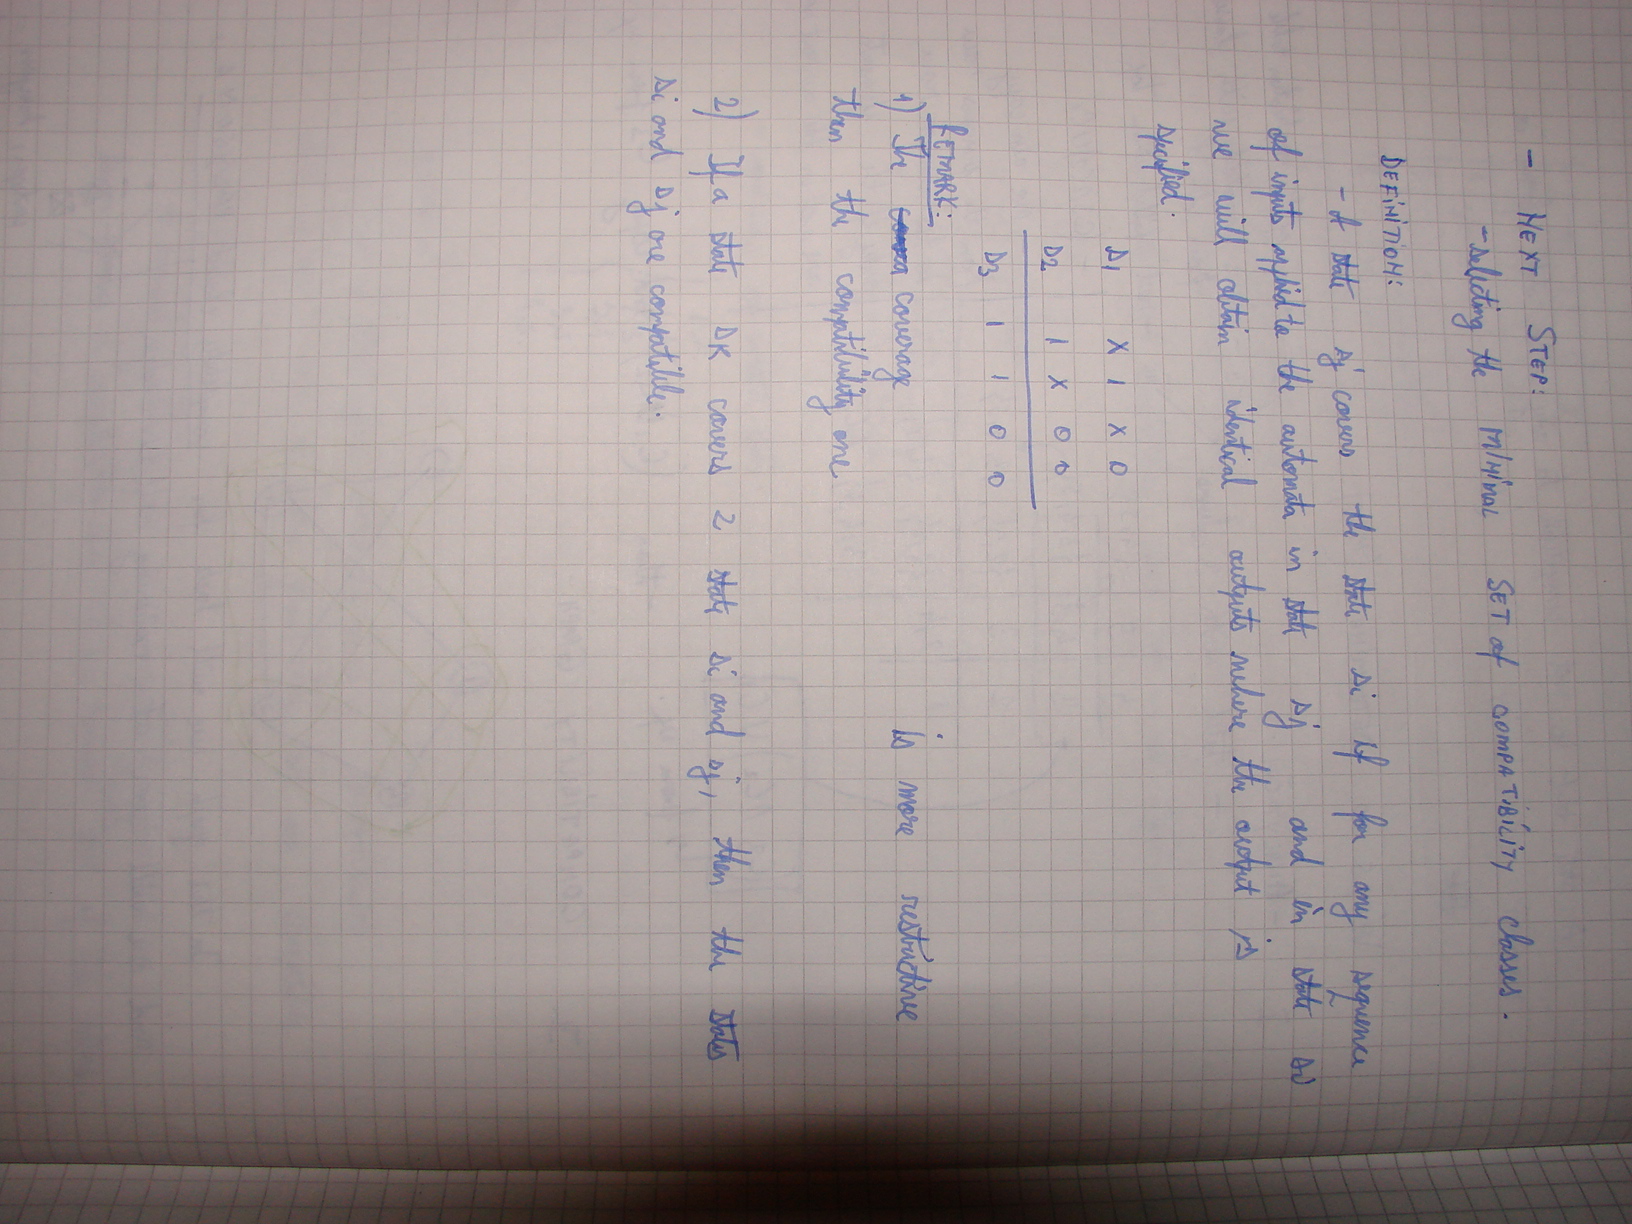 - NEXT STEP:
- Selecting the MINIMAL SET of COMPATIBILITY classes.
DEFINITION:
- A state sj covers the state si if for any sequence
of inputs applied to the automata in state sj and in state si
we will obtain identical outputs where the output is
specified.
s1 X 1 X 0
s2 1 X 0 0
s3 1 1 0 0
REMARK:
1) The coverage is more restrictive
then the compatibility one
2) If a state sk covers 2 state si and sj, then the states
si and sj are compatible.